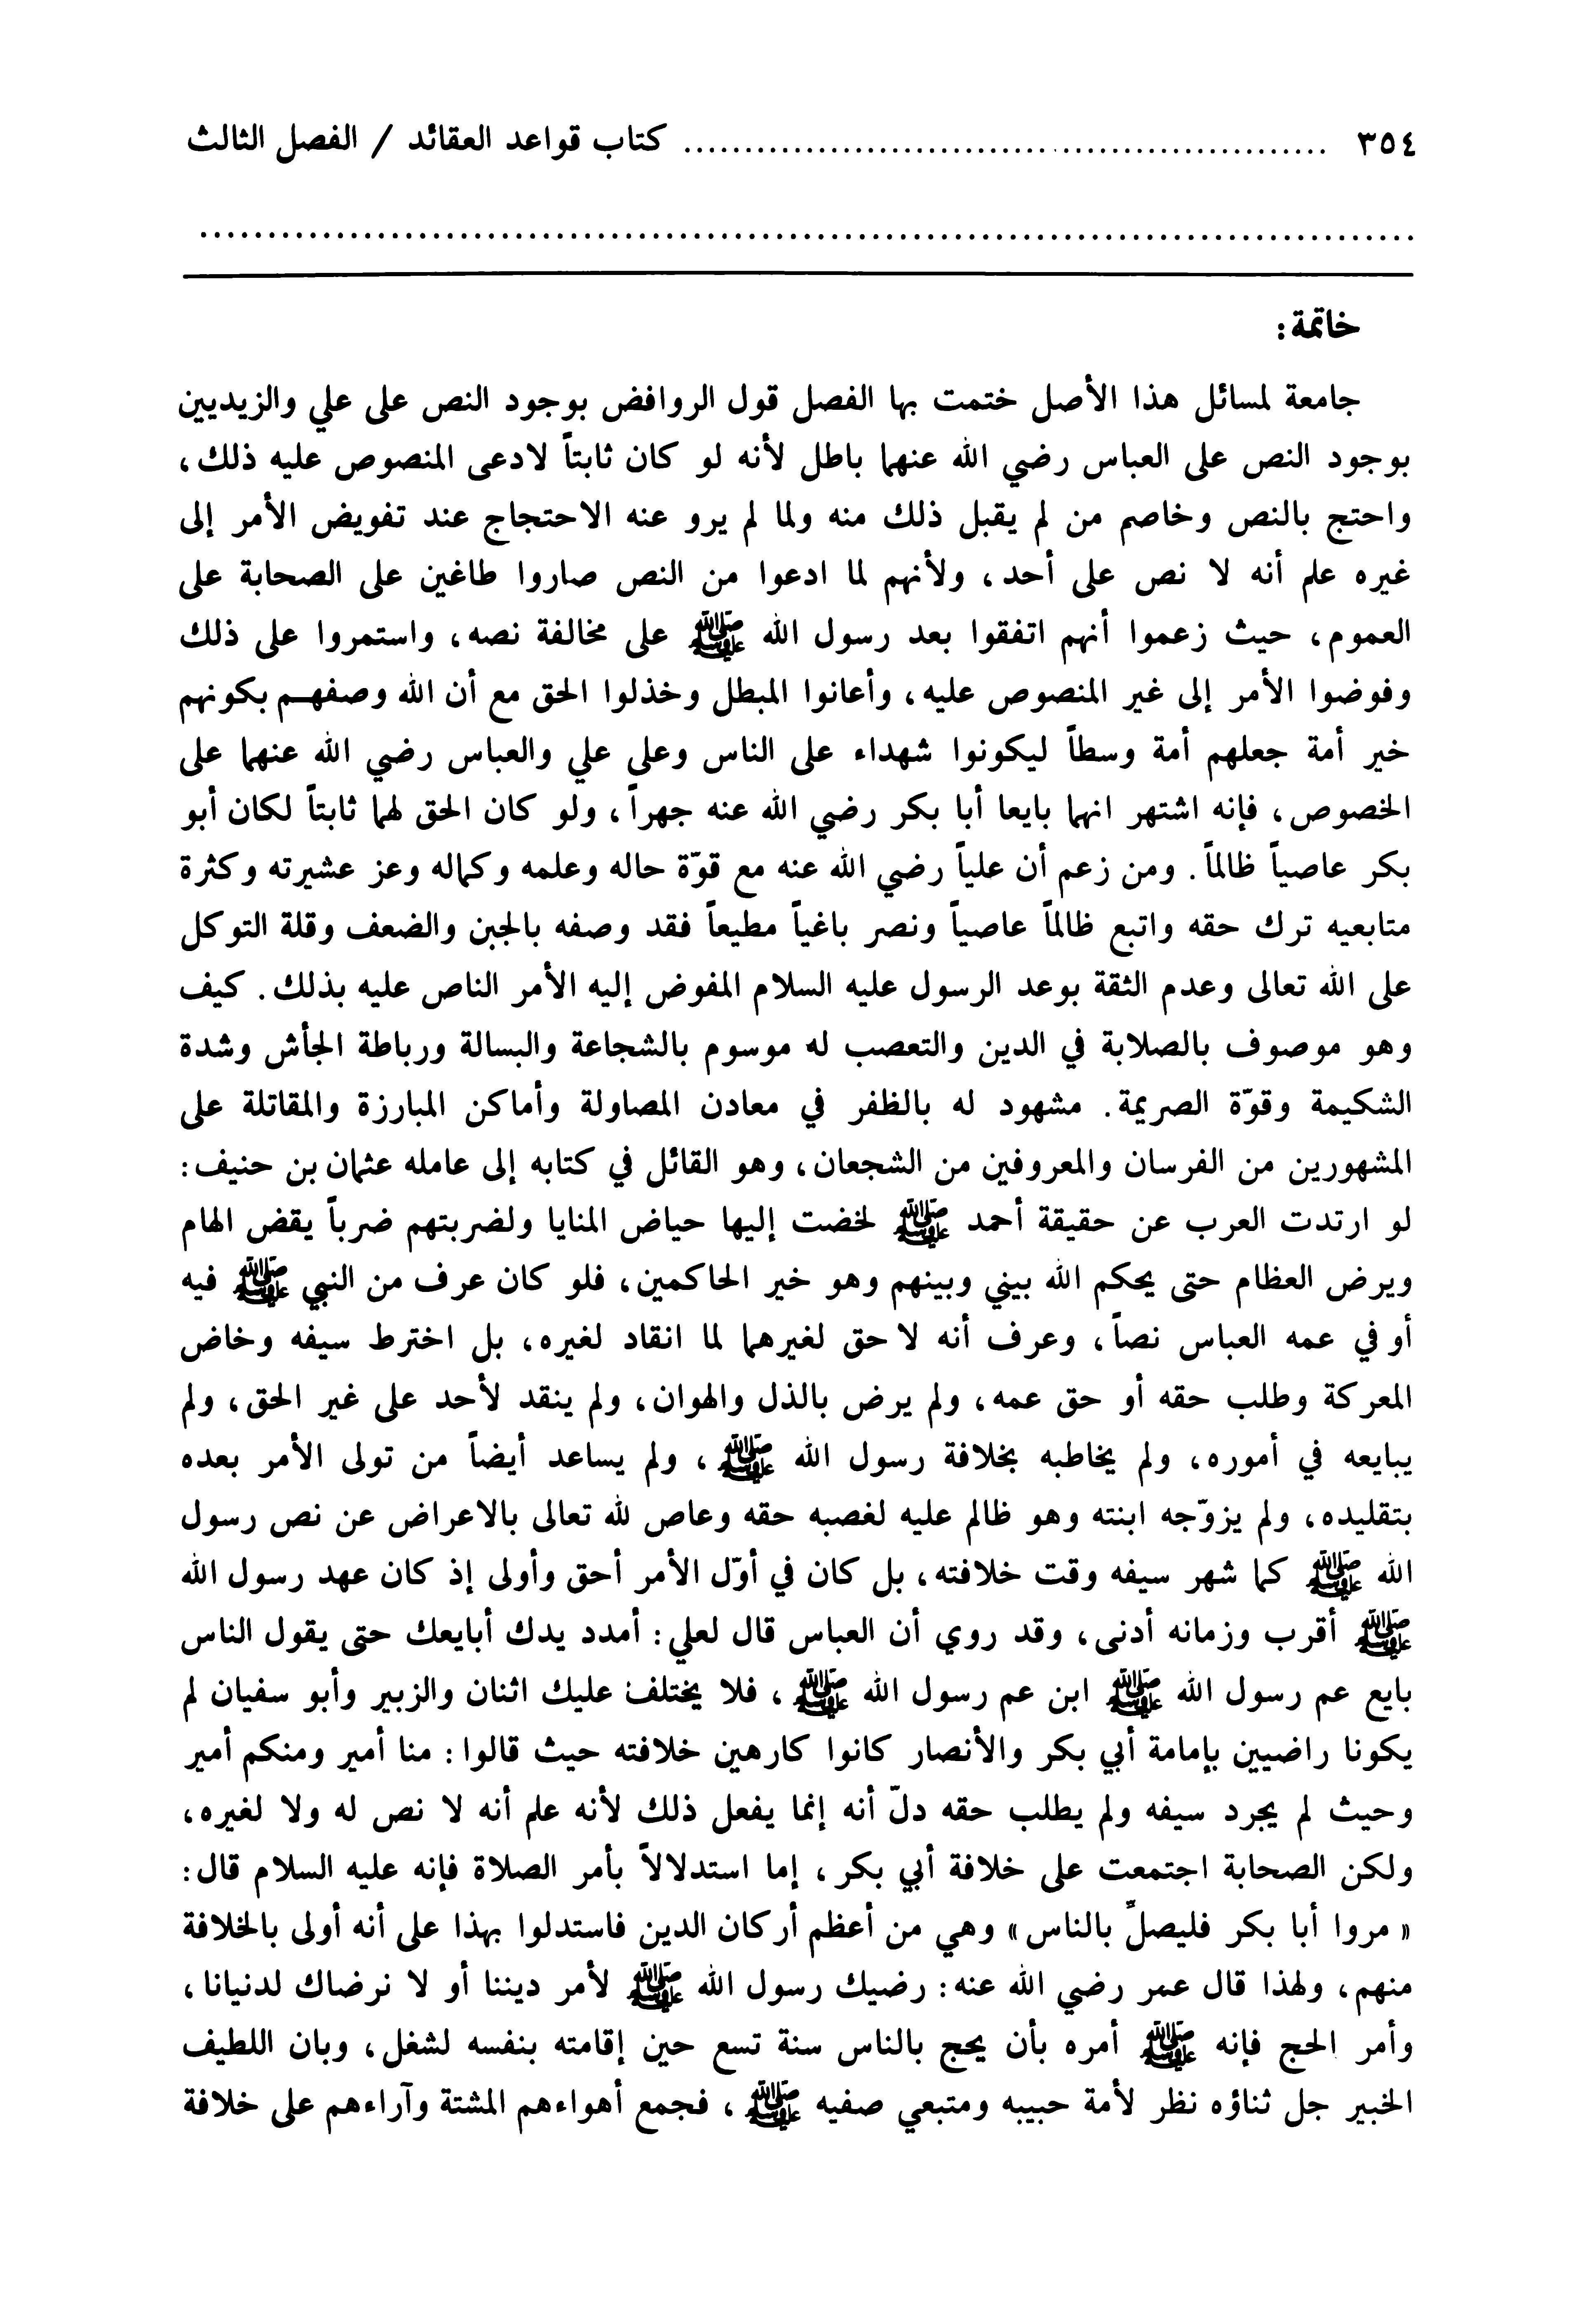 ٣٥٤ ........................................................ كتاب قواعد العقائد / الفصل الثالث
..........................................................................................
خاتمة:
جامعة لمسائل هذا الأصل ختمت بها الفصل قول الروافض بوجود النص على علي والزيديين
بوجود النص على العباس رضي الله عنهما باطل لأنه لو كان ثابتاً لادعى المنصوص عليه ذلك،
واحتج بالنص وخاصم من لم يقبل ذلك منه ولما لم يرو عنه الاحتجاج عند تفويض الأمر إلى
غيره علم أنه لا نص على أحد، ولأنهم لما ادعوا من النص صاروا طاغين على الصحابة على
العموم، حيث زعموا أنهم اتفقوا بعد رسول الله ﷺ على مخالفة نصه، واستمروا على ذلك
وفوضوا الأمر إلى غير المنصوص عليه، وأعانوا المبطل وخذلوا الحق مع أن الله وصفهم بكونهم
خير أمة جعلهم أمة وسطاً ليكونوا شهداء على الناس وعلى علي والعباس رضي الله عنهما على
الخصوص، فإنه اشتهر انهما بايعا أبا بكر رضي الله عنه جهراً، ولو كان الحق لهما ثابتاً لكان أبو
بكر عاصياً ظالماً. ومن زعم أن علياً رضي الله عنه مع قوّة حاله وعلمه وكماله وعز عشيرته وكثرة
متابعيه ترك حقه واتبع ظالماً عاصياً ونصر باغياً مطيعاً فقد وصفه بالجبن والضعف وقلة التوكل
على الله تعالى وعدم الثقة بوعد الرسول عليه السلام المفوض إليه الأمر الناص عليه بذلك. كيف
وهو موصوف بالصلابة في الدين والتعصب له موسوم بالشجاعة والبسالة ورباطة الجأش وشدة
الشكيمة وقوّة الصريمة. مشهود له بالظفر في معادن المصاولة وأماكن المبارزة والمقاتلة على
المشهورين من الفرسان والمعروفين من الشجعان، وهو القائل في كتابه إلى عامله عثمان بن حنيف:
لو ارتدت العرب عن حقيقة أحمد ﷺ لخضت إليها حياض المنايا ولضربتهم ضرباً يقض الهام
ويرض العظام حتى يحكم الله بيني وبينهم وهو خير الحاكمين، فلو كان عرف من النبي ﷺ فيه
أو في عمه العباس نصاً، وعرف أنه لا حق لغيرهما لما انقاد لغيره، بل اخترط سيفه وخاض
المعركة وطلب حقه أو حق عمه، ولم يرض بالذل والهوان، ولم ينقد لأحد على غير الحق، ولم
يبايعه في أموره، ولم يخاطبه بخلافة رسول الله ﷺ، ولم يساعد أيضاً من تولى الأمر بعده
بتقليده، ولم يزوّجه ابنته وهو ظالم عليه لغصبه حقه وعاص لله تعالى بالاعراض عن نص رسول
الله ﷺ كما شهر سيفه وقت خلافته، بل كان في أوّل الأمر أحق وأولى إذ كان عهد رسول الله
ﷺ أقرب وزمانه أدنى، وقد روي أن العباس قال لعلي: أمدد يدك أبايعك حتى يقول الناس
بايع عم رسول الله ﷺ ابن عم رسول الله ﷺ، فلا يختلف عليك اثنان والزبير وأبو سفيان لم
يكونا راضيين بإمامة أبي بكر والأنصار كانوا كارهين خلافته حيث قالوا: منا أمير ومنكم أمير
وحيث لم يجرد سيفه ولم يطلب حقه دلّ أنه إنما يفعل ذلك لأنه علم أنه لا نص له ولا لغيره،
ولكن الصحابة اجتمعت على خلافة أبي بكر، إما استدلالاً بأمر الصلاة فإنه عليه السلام قال:
« مروا أبا بكر فليصلِّ بالناس» وهي من أعظم أركان الدين فاستدلوا بهذا على أنه أولى بالخلافة
منهم، ولهذا قال عمر رضي الله عنه: رضيك رسول الله ﷺ لأمر ديننا أو لا نرضاك لدنيانا،
وأمر الحج فإنه ﷺ أمره بأن يحج بالناس سنة تسع حين إقامته بنفسه لشغل، وبان اللطيف
الخبير جل ثناؤه نظر لأمة حبيبه ومتبعي صفيه ﷺ، فجمع أهواءهم المشتة وآراءهم على خلافة